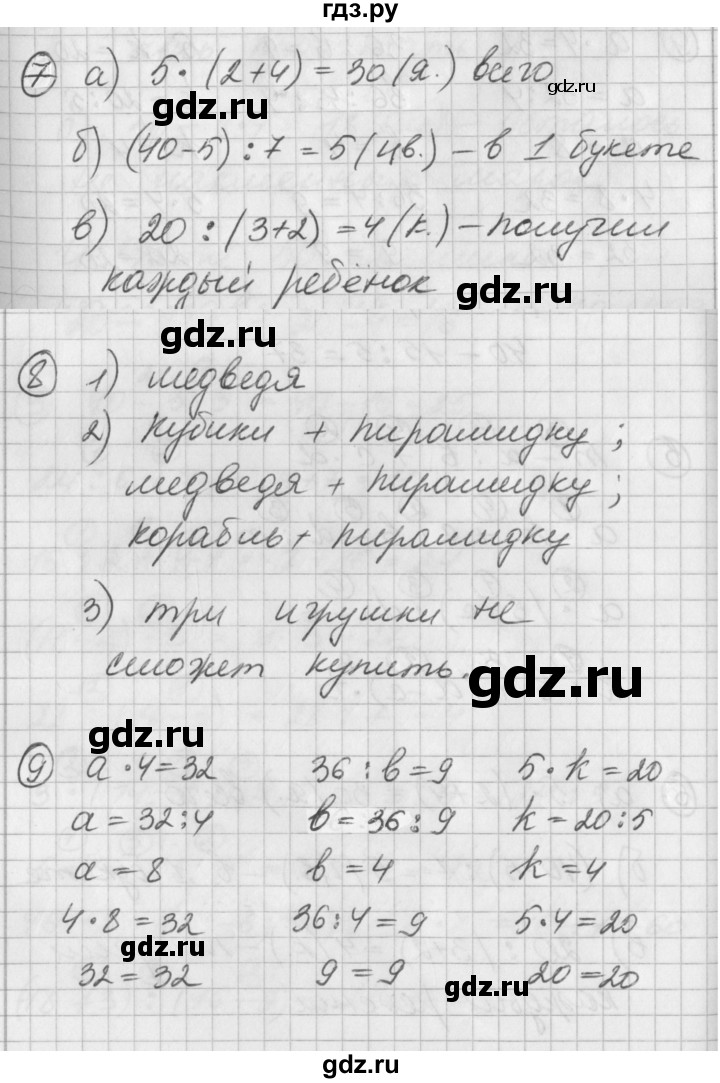 гдз.ру
7 а) 5·(2+4)=30(я.) всего
gdz.ru
gdz.ru
б) (40-5):7=5(цв.)-в 1 букете
в) 20:(3+2)=4(к.)-получил
каждый ребёнок
gdz.ru
gdz.ru
8 1) медведя
2) кубики + пирамидку;
медведя + пирамидку;
корабль + пирамидку
3) три игрушки не
сможет купить.
gdz.ru
gdz.ru
9 а·4=32 36:в=9 5·k=20
а=32:4 в=36:9 k=20:5
а=8 в=4 k=4
4·8=32 36:4=9 5·4=20
gdz.ru
32=32 9=9 20=20
gdz.ru
gdz.ru